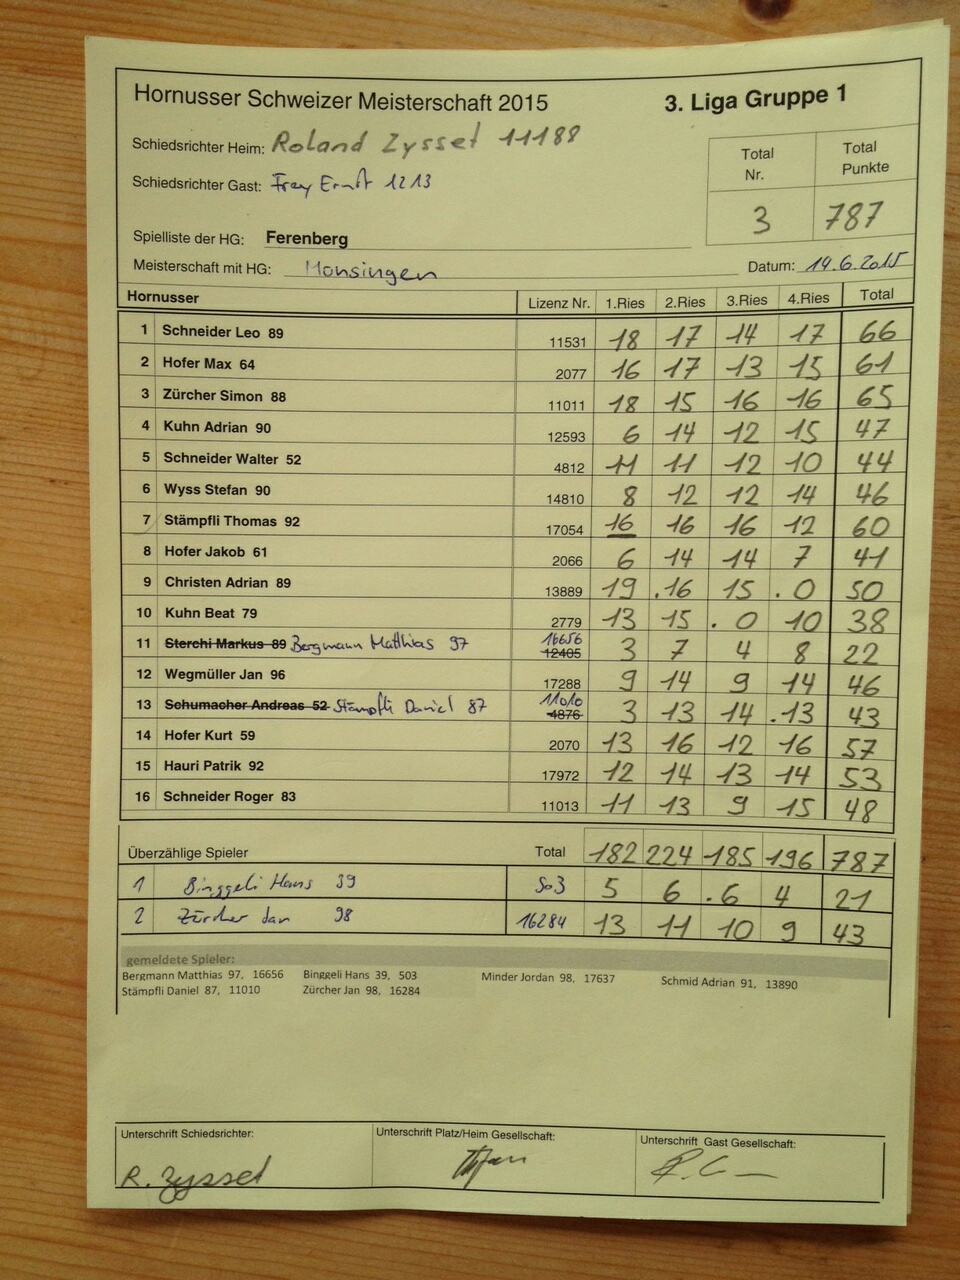 Hornusser Schweizer Meisterschaft 2015 3. Liga Gruppe 1
Schiedsrichter Heim: Roland Zysset 11188
Schiedsrichter Gast: Frey Ernst 1213
Total Nr. Total Punkte
3 787
Spielliste der HG: Ferenberg
Meisterschaft mit HG: Münsingen Datum: 14.6.2015
Hornusser Lizenz Nr. 1.Ries 2.Ries 3.Ries 4.Ries Total
1 Schneider Leo 89 11531 18 17 14 17 66
2 Hofer Max 64 2077 16 17 13 15 61
3 Zürcher Simon 88 11011 18 15 16 16 65
4 Kuhn Adrian 90 12593 6 14 12 15 47
5 Schneider Walter 52 4812 11 11 12 10 44
6 Wyss Stefan 90 14810 8 12 12 14 46
7 Stämpfli Thomas 92 17054 16 16 16 12 60
8 Hofer Jakob 61 2066 6 14 14 7 41
9 Christen Adrian 89 13889 19 .16 15 . 0 50
10 Kuhn Beat 79 2779 13 15 . 0 10 38
11 Sterchi Markus 89 Bergmann Matthias 97 16656 12405 3 7 4 8 22
12 Wegmüller Jan 96 17288 9 14 9 14 46
13 Schumacher Andreas 52 Stämpfli Daniel 87 11010 4876 3 13 14 .13 43
14 Hofer Kurt 59 2070 13 16 12 16 57
15 Hauri Patrik 92 17972 12 14 13 14 53
16 Schneider Roger 83 11013 11 13 9 15 48
Überzählige Spieler Total 182 224 185 196 787
1 Binggeli Hans 39 503 5 6 .6 4 21
2 Zürcher Jan 98 16284 13 11 10 9 43
gemeldete Spieler:
Bergmann Matthias 97, 16656 Binggeli Hans 39, 503 Minder Jordan 98, 17637 Schmid Adrian 91, 13890
Stämpfli Daniel 87, 11010 Zürcher Jan 98, 16284
Unterschrift Schiedsrichter: Unterschrift Platz/Heim Gesellschaft: Unterschrift Gast Gesellschaft:
R. Zysset